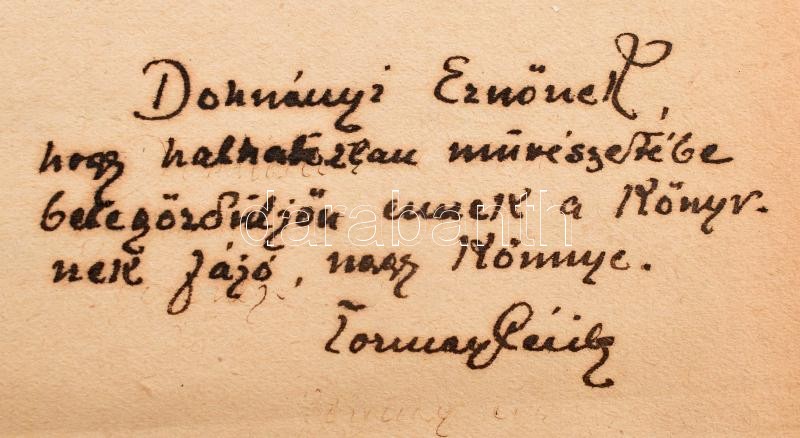 Dohnányi Ernőnek,
hogy halhatatlan művészetébe
belegördüljön ennek a Könyv-
nek fájó, nagy Könnye.
Tormay Cécile
darabanth